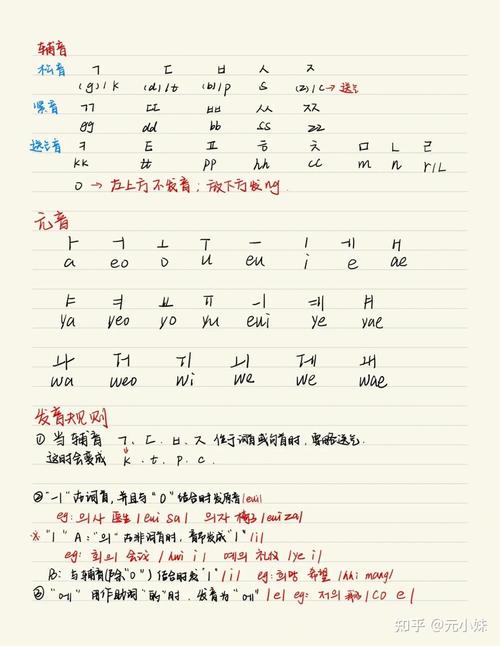 辅音
松音 ㄱ ㄷ ㅂ ㅅ ㅈ
(g)/k (d)/t (b)/p s (z)/c→送气
紧音 ㄲ ㄸ ㅃ ㅆ ㅉ
gg dd bb ss zz
送气音 ㅋ ㅌ ㅍ ㅎ ㅊ ㅁ ㄴ ㄹ
kk tt pp hh cc m n r/L
ㅇ → 左上方不发音；放下方发ng.
元音
ㅏ ㅓ ㅗ ㅜ ㅡ ㅣ ㅔ ㅐ
a eo o u eu i e ae
ㅑ ㅕ ㅛ ㅠ ㅢ ㅖ ㅒ
ya yeo yo yu eui ye yae
ㅘ ㅝ ㅟ ㅚ ㅞ ㅙ
wa weo wi we we wae
发音规则
① 当辅音 ㄱ、ㄷ、ㅂ、ㅈ 位于词首或句首时，要略送气.
这时会变成 k . t . p . c .
② "ㅢ" 在词首，并且与 "ㅇ" 结合时发原音 |eui|
eg: 의사 医生 |eui sa| 의자 椅子 |eui za|
※ "ㅢ" A: "의" 在非词首时，都发成 "ㅣ" |i|
eg: 회의 会议 |hwi i| 예의 礼仪 |ye i|
B: 与辅音(除"ㅇ")结合时发 "ㅣ" |i| eg: 희망 希望 |hhi mang|
③ "의" 用作助词 "的" 时，发音为 "에" |e| eg: 저의 |co e|
知乎 @元小妹